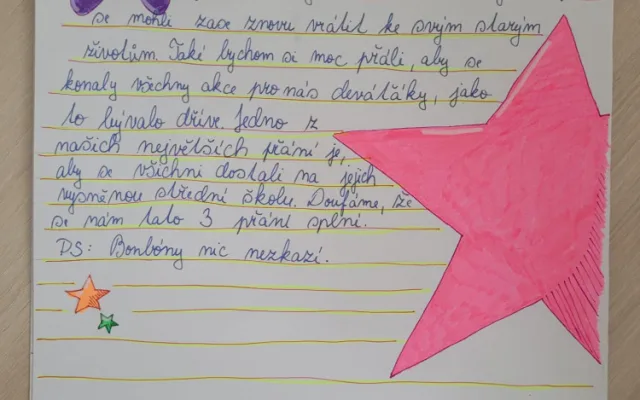 se mohli zase znovu vrátit ke svým starým
životům. Také bychom si moc přáli, aby se
konaly všechny akce pro nás deváťáky, jako
to bývalo dříve. Jedno z
našich největších přání je,
aby se všichni dostali na jejich
vysněnou střední školu. Doufáme, že
se nám tato 3 přání splní.
PS: Bonbóny nic nezkazí.